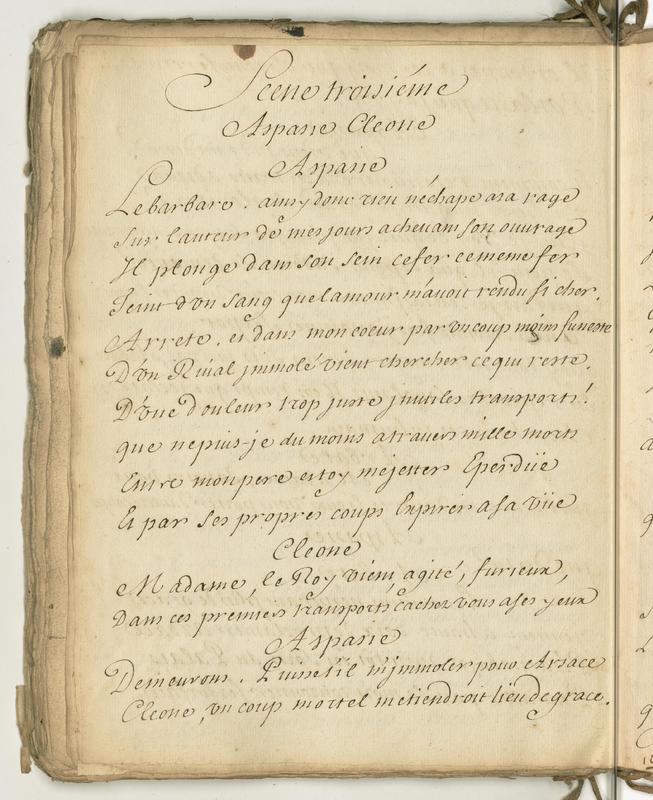 Scene troisiéme
Aspasie Cleone
Aspasie
Le barbare. ainsy donc rien n'échape a sa rage
Sur l'auteur de mes jours achevam son ouvrage
Il plonge dans son sein ce fer ce meme fer
Teint d'vn sang que l'amour m'avoit rendu si cher.
Arrete. et dans mon coeur par vn coup moins funeste
D'vn Rival jmmolé vient chercher ce qui reste.
D'vne douleur trop juste jnutiles transports!
que ne puis-je du moins a travers mille morts
Entre mon pere et toy me jetter Eperdüe
Et par ses propres coups Expirer a sa vüe
Cleone
Madame, le Roy vient, agité, furieux,
Dans ces premiers transports cachez vous a ses yeux
Aspasie
Demeurons. Puisse t'il m'jmmoler pour Arsace
Cleone, vn coup mortel me tiendroit lieu de grace.